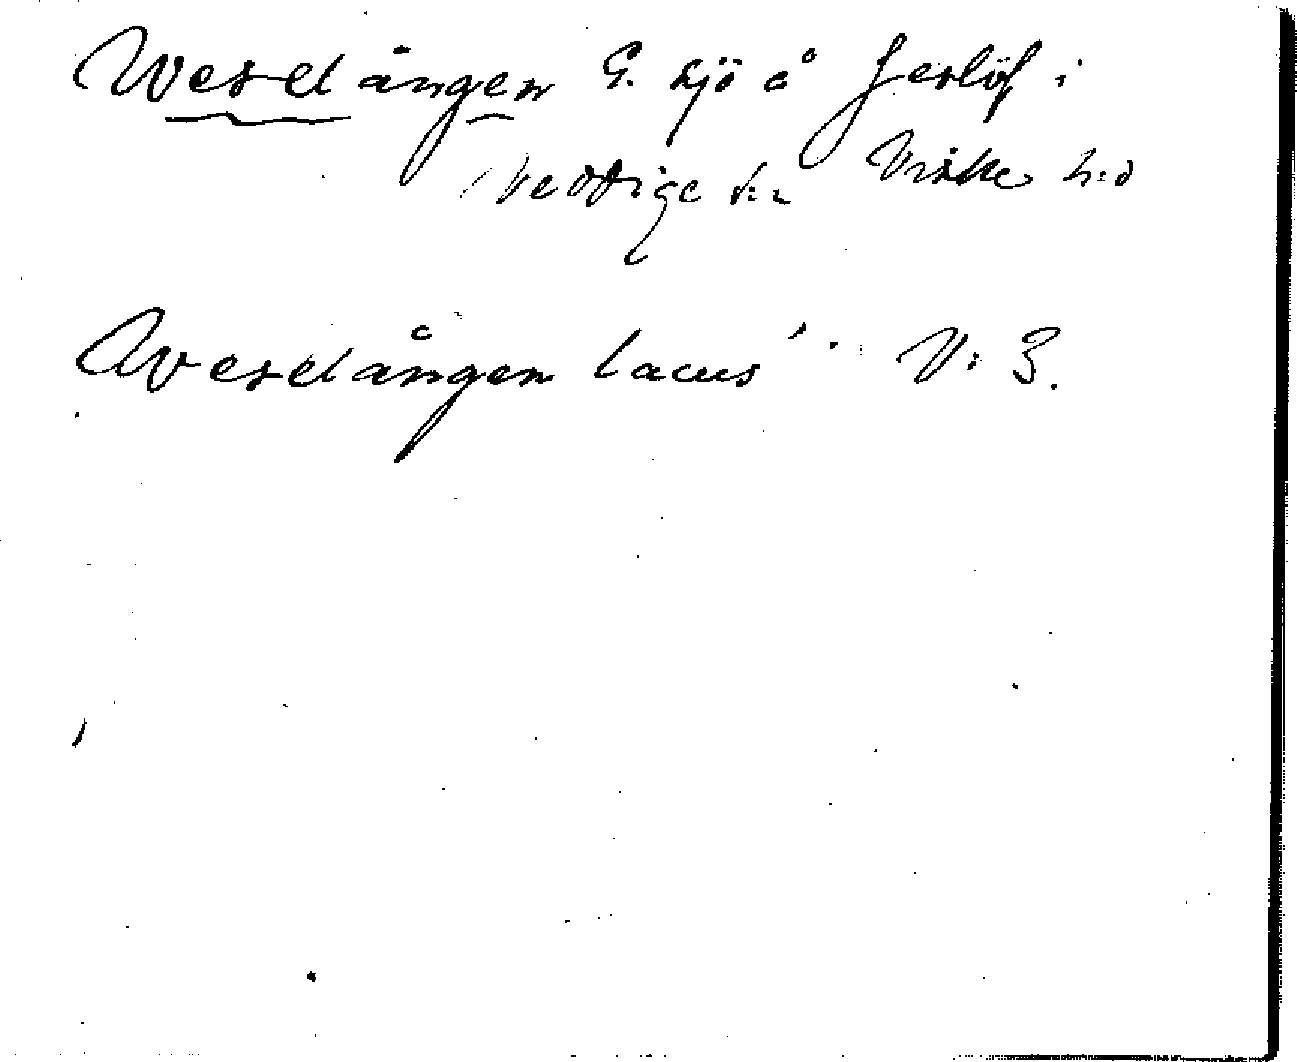 Weselången G. sjö å Jerlöf i
Veddige s:n Viske h:d
Weselången lacus V: 3.